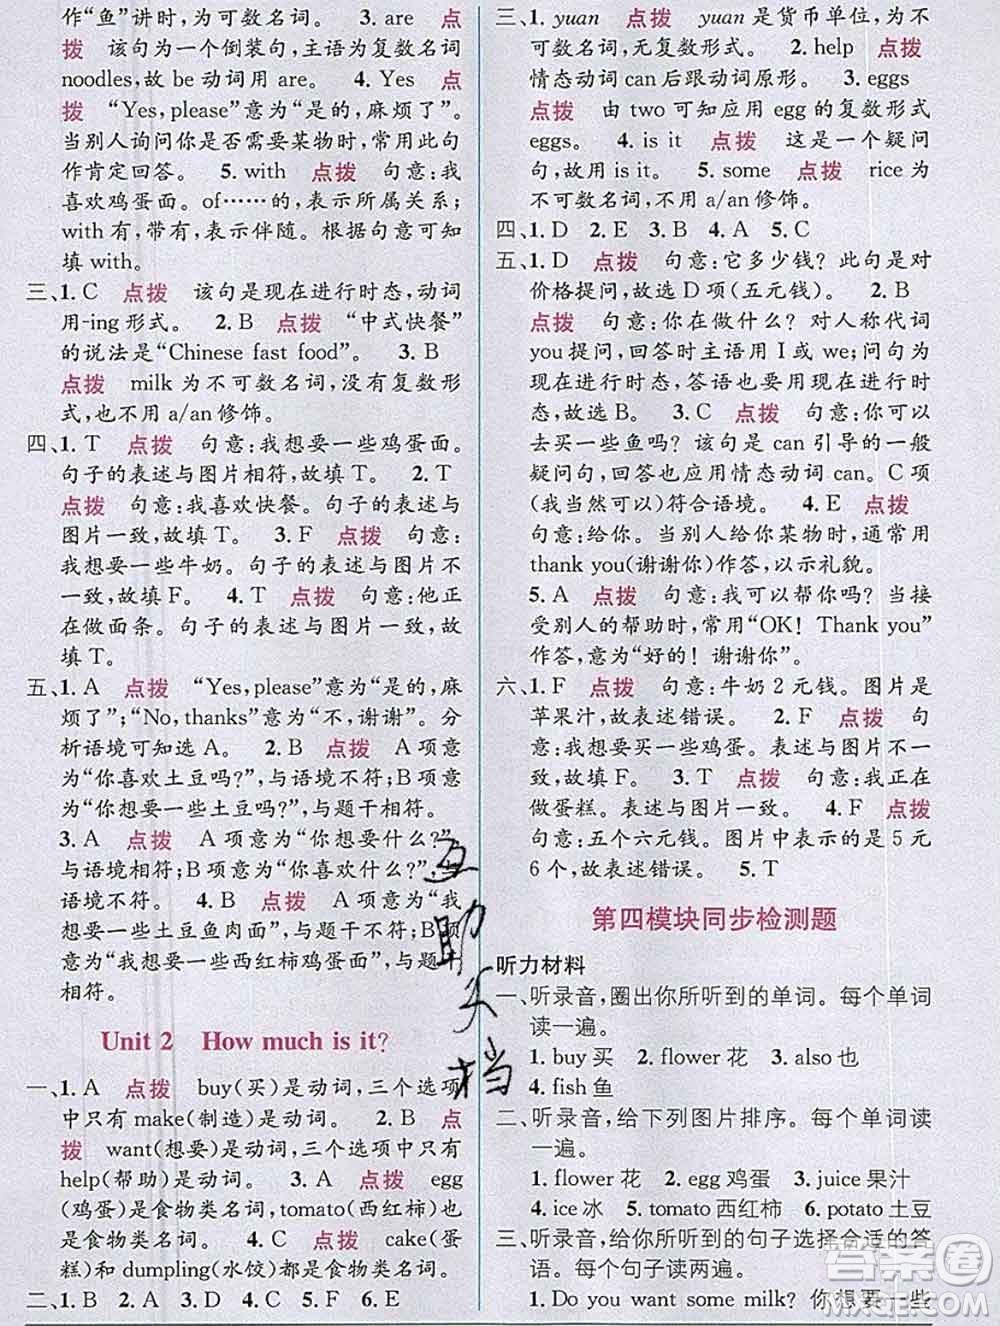 作“鱼”讲时,为可数名词。 3. are 点
拨 该句为一个倒装句,主语为复数名词
noodles,故 be 动词用 are。 4. Yes 点
拨 “Yes, please”意为“是的,麻烦了”。
当别人询问你是否需要某物时,常用此句
作肯定回答。 5. with 点拨 句意:我
喜欢鸡蛋面。of……的,表示所属关系;
with 有,带有,表示伴随。根据句意可知
填 with。
三、1. C 点拨 该句是现在进行时态,动词
用-ing 形式。 2. B 点拨 “中式快餐”
的说法是“Chinese fast food”。 3. B
点拨 milk 为不可数名词,没有复数形
式,也不用 a/an 修饰。
四、1. T 点拨 句意:我想要一些鸡蛋面。
句子的表述与图片相符,故填 T。 2. T
点拨 句意:我喜欢快餐。句子的表述与
图片一致,故填 T。 3. F 点拨 句意:
我想要一些牛奶。句子的表述与图片不
一致,故填 F。 4. T 点拨 句意:他正
在做面条。句子的表述与图片一致,故
填 T。
五、1. A 点拨 “Yes, please”意为“是的,麻
烦了”;“No, thanks”意为“不,谢谢”。分
析语境可知选 A。 2. B 点拨 A 项意
为“你喜欢土豆吗?”,与语境不符;B 项意
为“你想要一些土豆吗?”,与题干相符。
3. A 点拨 A 项意为“你想要什么?”,
与语境相符;B 项意为“你喜欢什么?”,与
语境不符。 4. B 点拨 A 项意为“我想
要一些土豆鱼肉面”,与题干不符;B 项意
为“我想要一些西红柿鸡蛋面”,与题干
相符。
Unit 2 How much is it?
一、1. A 点拨 buy(买)是动词,三个选项
中只有 make(制造)是动词。 2. B 点
拨 want(想要)是动词,三个选项中只有
help(帮助)是动词。 3. A 点拨 egg
(鸡蛋)是食物类名词,tomato(西红柿)也
是食物类名词。 4. C 点拨 cake(蛋
糕)和 dumpling(水饺)都是食物类名词。
二、1. B 2. A 3. C 4. D 5. F 6. E
三、1. yuan 点拨 yuan 是货币单位,为不
可数名词,无复数形式。 2. help 点拨
情态动词 can 后跟动词原形。 3. eggs
点拨 由 two 可知应用 egg 的复数形式
eggs。 4. is it 点拨 这是一个疑问
句,故用 is it。 5. some 点拨 rice 为
不可数名词,不用 a/an 修饰。
四、1. D 2. E 3. B 4. A 5. C
五、1. D 点拨 句意:它多少钱?此句是
对价格提问,故选 D 项(五元钱)。 2. B
点拨 句意:你在做什么?对人称代词
you 提问,回答时主语用 I 或 we;问句为
现在进行时态,答语也应用现在进行时
态,故选 B。 3. C 点拨 句意:你可以
去买一些鱼吗?该句是 can 引导的一般
疑问句,回答也应用情态动词 can。C 项
(我当然可以)符合语境。 4. E 点拨
句意:给你。当别人给你某物时,通常用
thank you(谢谢你)作答,以示礼貌。
5. A 点拨 句意:我可以帮你吗?当接
受别人的帮助时,常用“OK! Thank you”
作答,意为“好的!谢谢你”。
六、1. F 点拨 句意:牛奶 2 元钱。图片是
苹果汁,故表述错误。 2. F 点拨 句
意:我想要买一些鸡蛋。表述与图片不一
致,故填 F。 3. T 点拨 句意:我正在
做蛋糕。表述与图片一致。 4. F 点拨
句意:五个六元钱。图片中表示的是 5 元
6 个,故表述错误。 5. T
第四模块同步检测题
听力材料
一、听录音,圈出你所听到的单词。每个单词
读一遍。
1. buy 买 2. flower 花 3. also 也
4. fish 鱼
二、听录音,给下列图片排序。每个单词读
一遍。
1. flower 花 2. egg 鸡蛋 3. juice 果汁
4. ice 冰 5. tomato 西红柿 6. potato 土豆
三、听录音,给你所听到的句子选择合适的答
语。每个句子读两遍。
1. Do you want some milk? 你想要一些
互助文档
答案圈